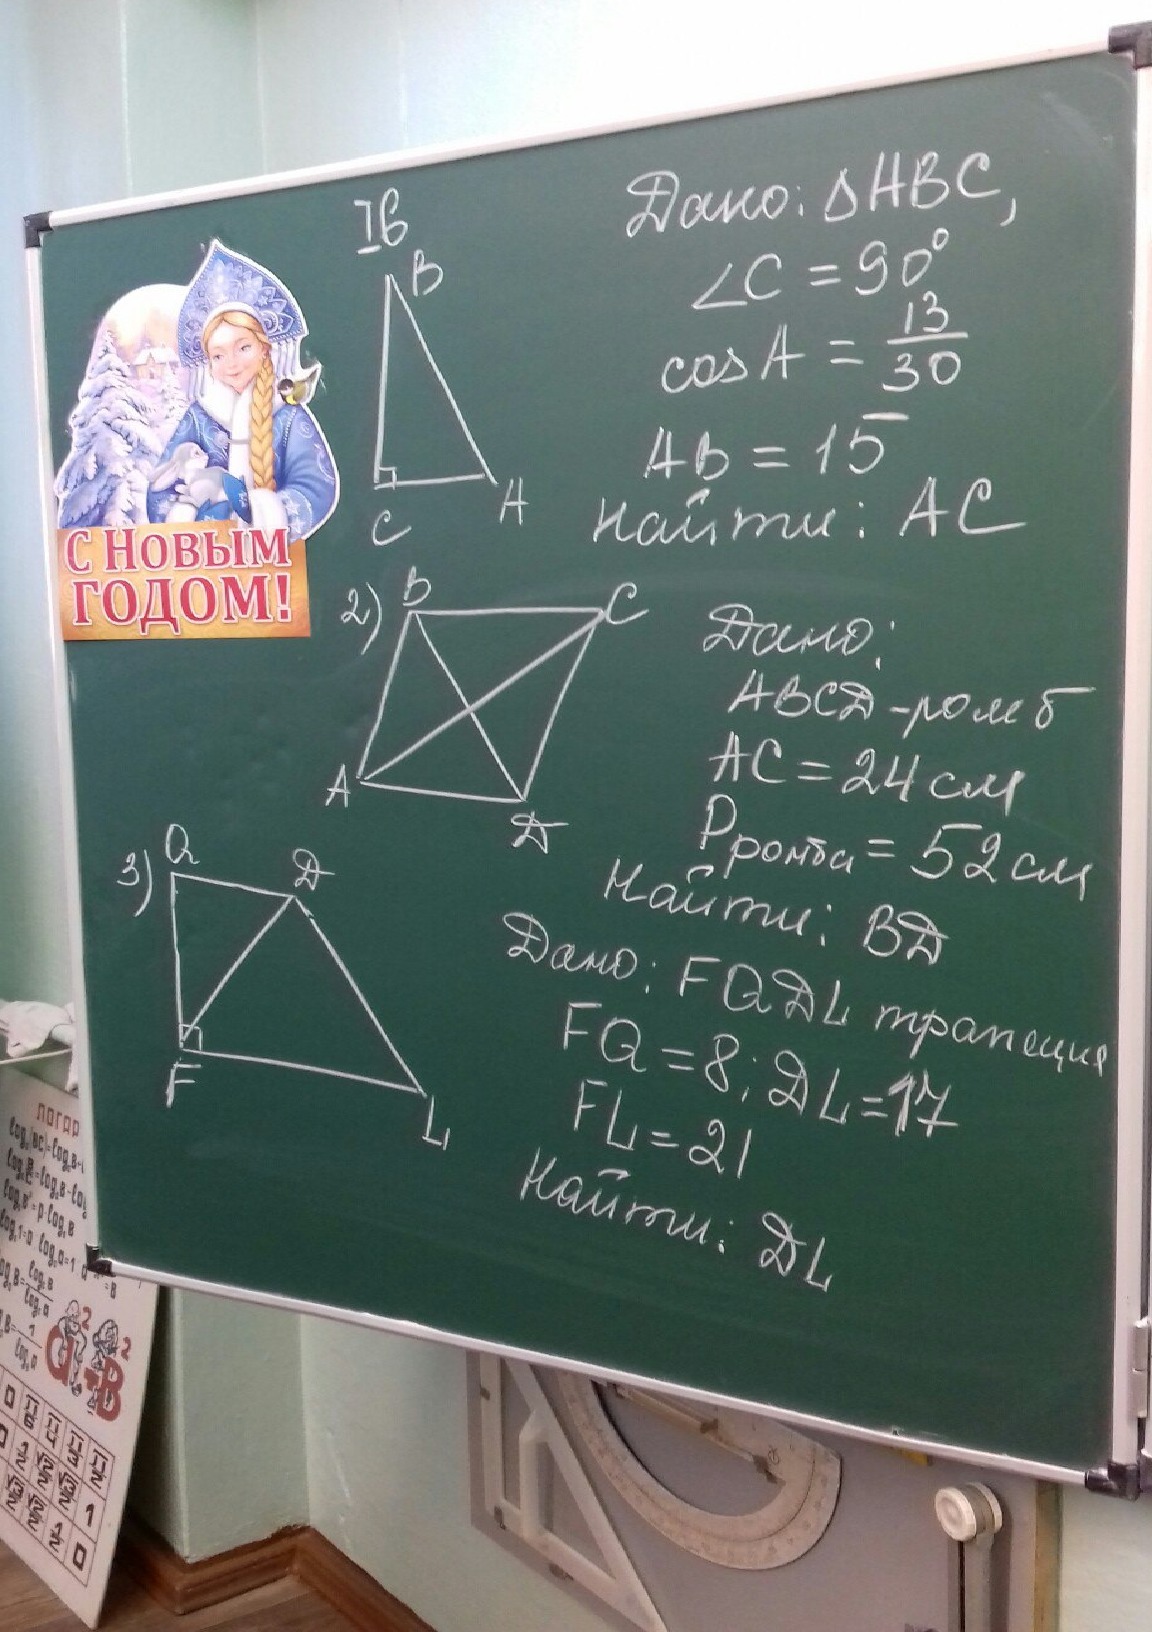 Iв
B
C
A
Дано: ΔABC,
∠C = 90°
cos A = 13/30
AB = 15
Найти: AC
С НОВЫМ
ГОДОМ!
2)
B
C
A
D
Дано:
ABCD - ромб
AC = 24 см
Pромба = 52 см
Найти: BD
3)
Q
D
F
L
Дано: FQDL трапеция
FQ = 8; DL = 17
FL = 21
Найти: DL